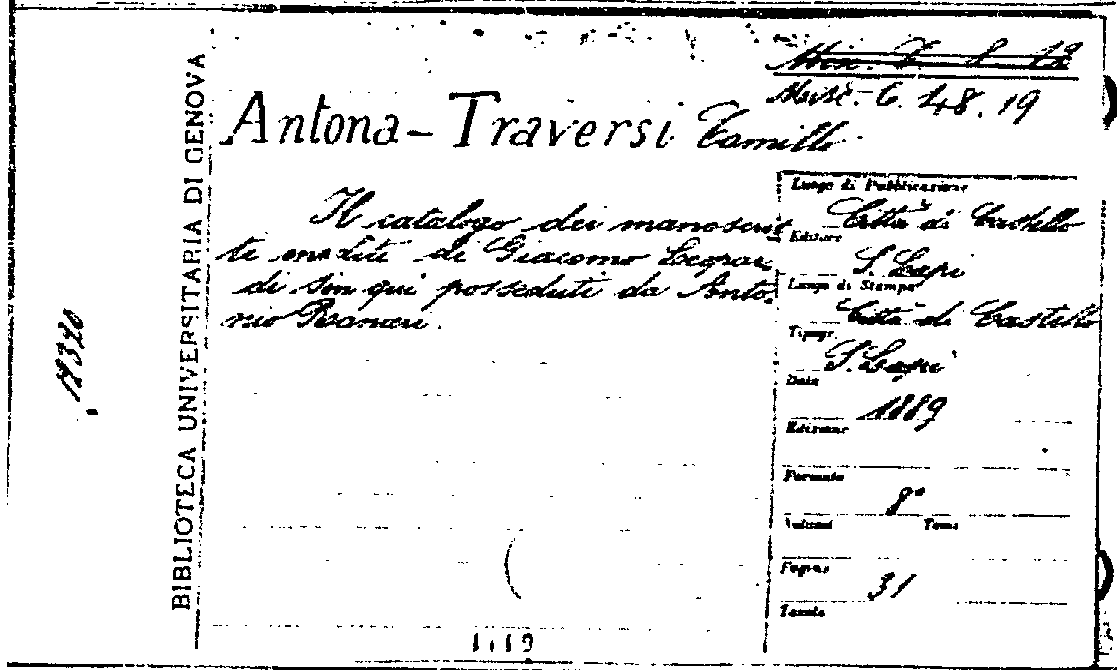 BIBLIOTECA UNIVERSITARIA DI GENOVA
Misc. C. 48. 19
Antona-Traversi Camillo
Il catalogo dei manoscrit
ti inediti di Giacomo Leopar
di sin qui posseduti da Anto
nio Ranieri.
Luogo di Pubblicazione
Città di Castello
Editore
S. Lapi
Luogo di Stampa
Città di Castello
Tipogr.
S. Lapi
Data
1889
Edizione
Formato
8°
Volumi Tomo
Pagine
31
Tavole
12320